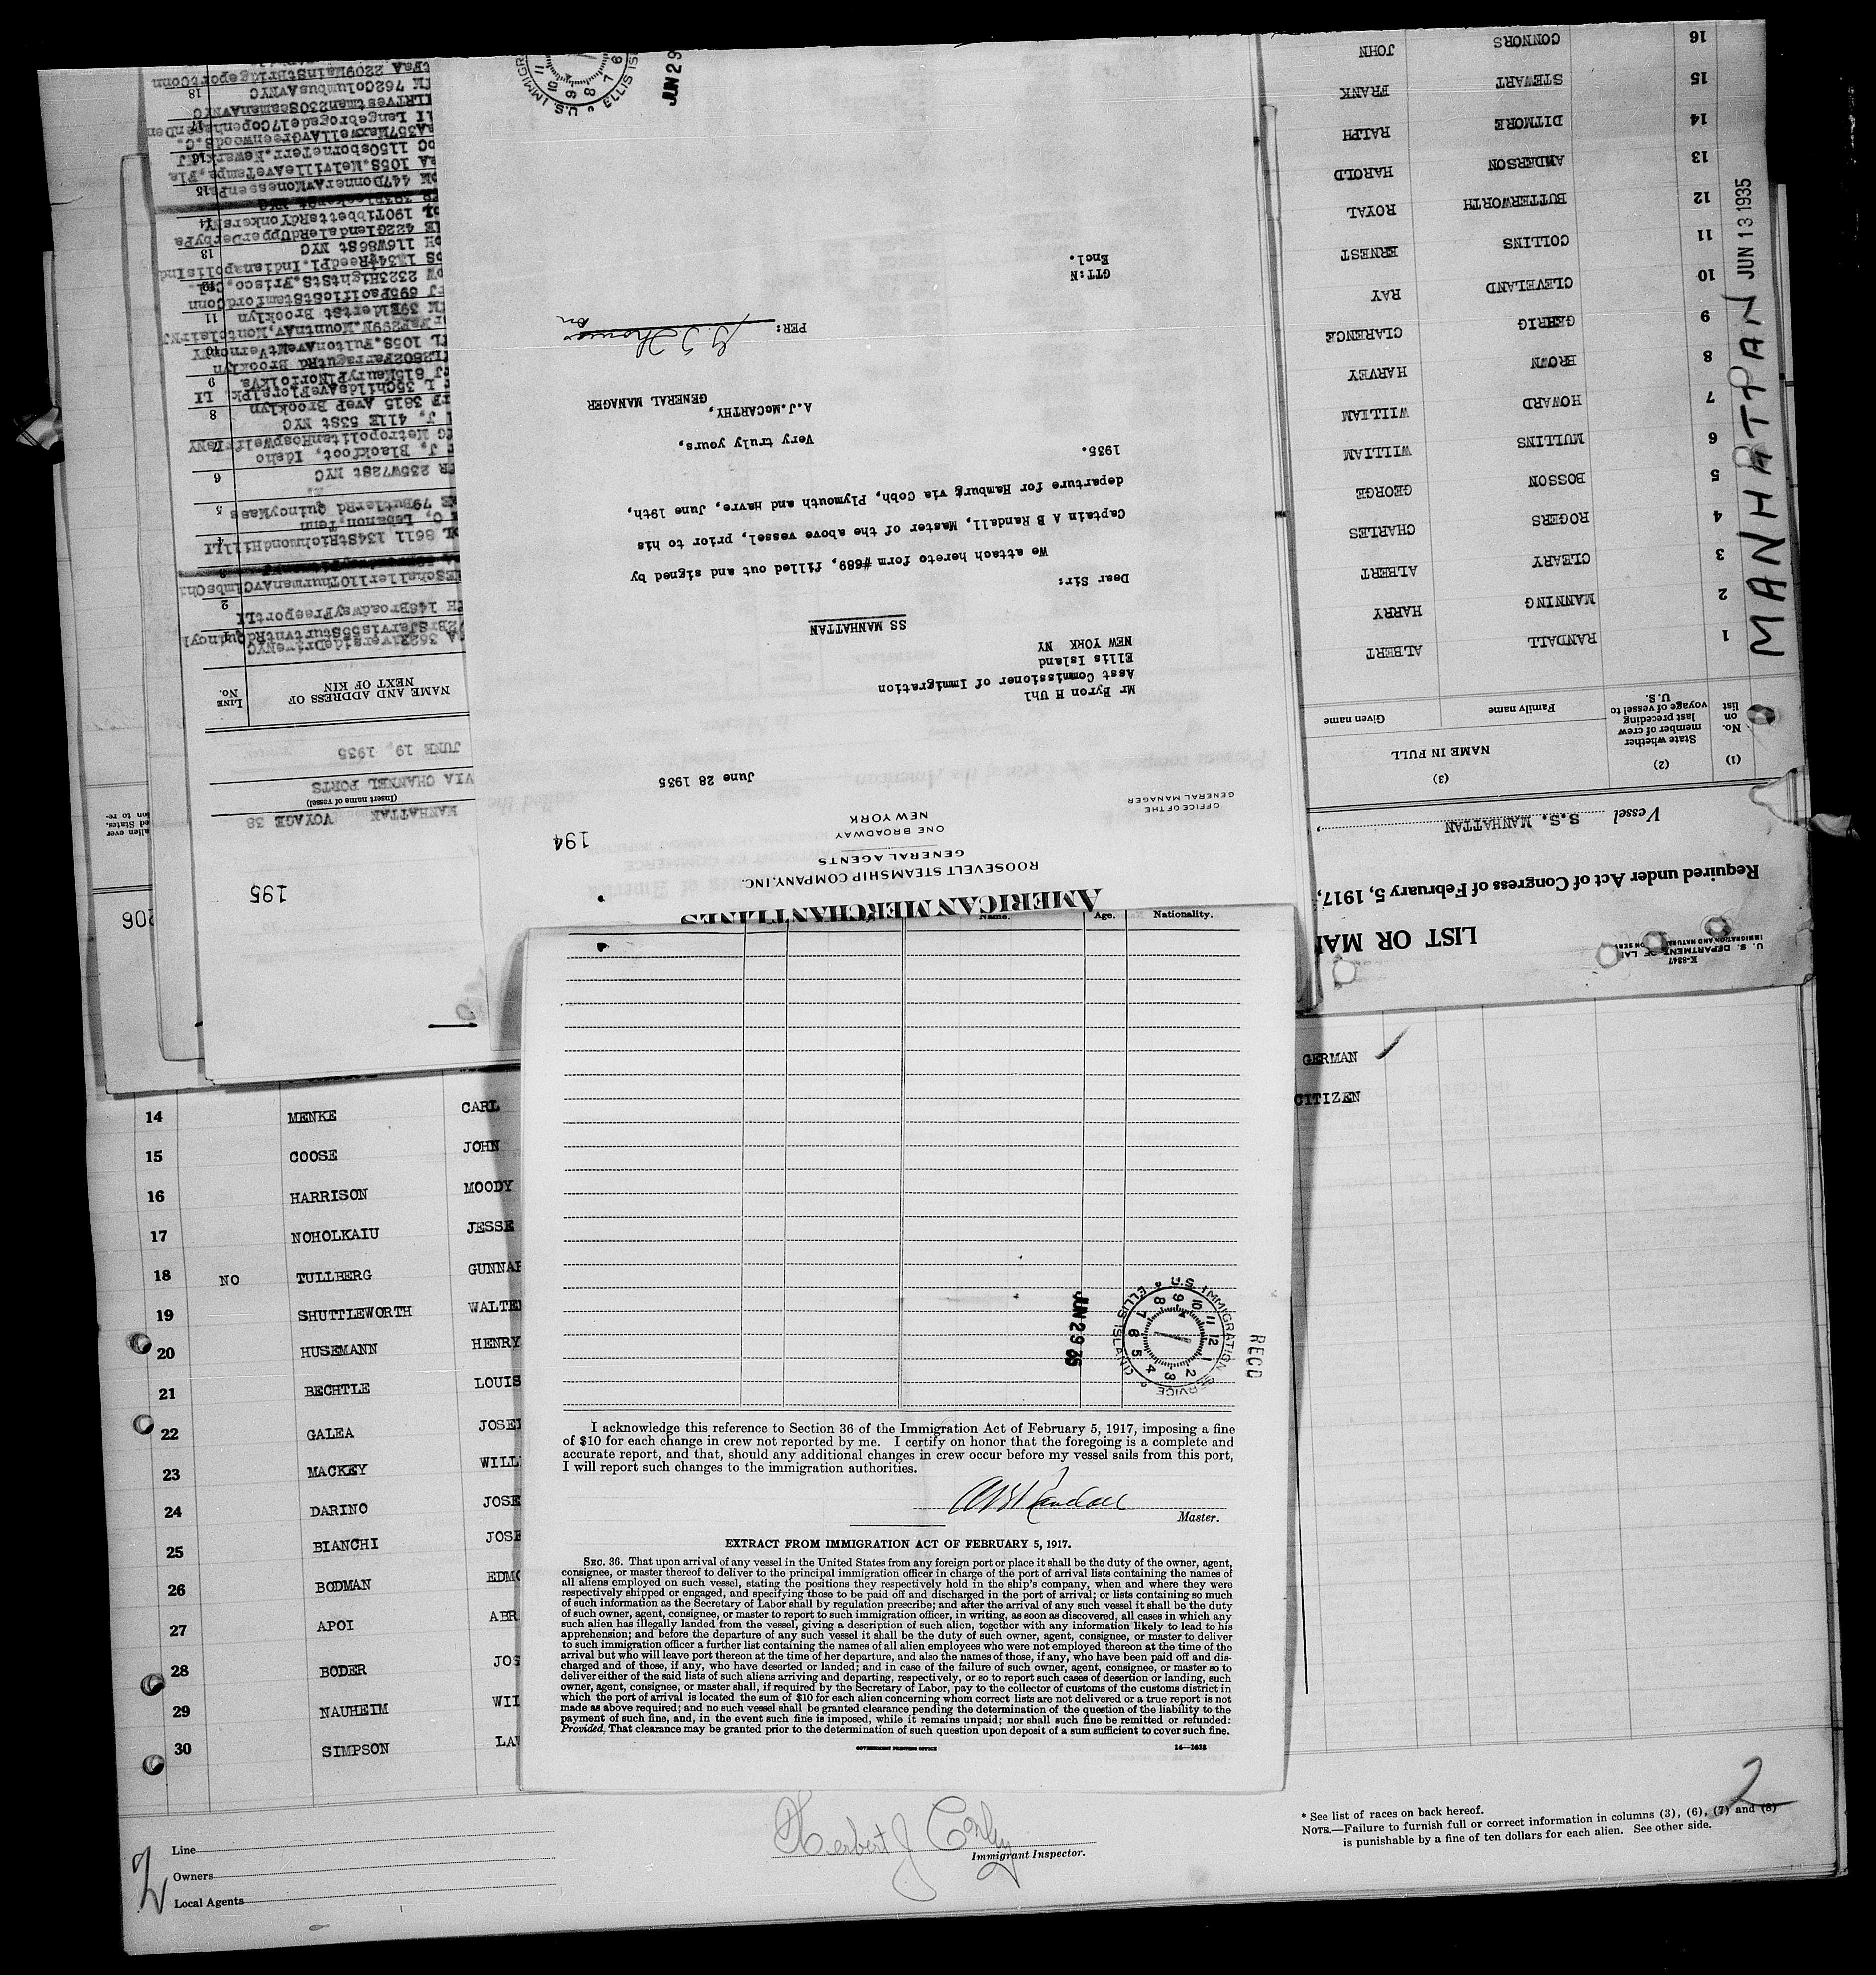 195
MANHATTAN VOYAGE 38
(Insert name of vessel)
VIA CHANNEL PORTS
JUNE 19, 1935
LINE No.
NAME AND ADDRESS OF NEXT OF KIN
2
5
6
8
9
11
13
18
362RiversideDriveNYC
146BroadwayFreeportLI
8611 134StRichmondHillLI
Lebanon, Tenn
79ButlerRd QuincyMass
235W72St NYC
J, Blackfoot, Idaho
J, 411E 53St NYC
3815 Ave P Brooklyn
105S.FultonAveMtVernonNY
39Eldertst Brooklyn
695PacificStStamfordConn
2323HightStS.Frisco, Cal.
1344ReedPl.IndianapolisInd
116W86St NYC
422GlendaleRdUpperDerbyPa
190TibbettsRdYonkersNY
447DonnerAvMonessenPa
105S.MelvilleAveTampa,Fla
115OsborneTerr.Newark NJ
357MaxwellAvGreenwoodS.C.
762ColumbusAvNYC
2209MainStBridgeportConn
206
194
AMERICAN MERCHANT LINES
ROOSEVELT STEAMSHIP COMPANY, INC.
GENERAL AGENTS
ONE BROADWAY
NEW YORK
OFFICE OF THE
GENERAL MANAGER
June 28 1935
Mr Byron H Uhl
Asst Commissioner of Immigration
Ellis Island
NEW YORK NY
SS MANHATTAN
Dear Sir:
We attach hereto form #689, filled out and signed by
Captain A B Randall, Master of the above vessel, prior to his
departure for Hamburg via Cobh, Plymouth and Havre, June 19th,
1935.
Very truly yours,
A.J.McCARTHY,
GENERAL MANAGER
PER:
GTT:N
Encl.
JUN 29
U.S. IMMIGR
ELLIS IS
K-8347
U. S. DEPARTMENT OF LA
IMMIGRATION AND NATURAL
LIST OR MA
Required under Act of Congress of February 5, 1917,
Vessel S.S. MANHATTAN,
(1) (2) (3)
No. on list
State whether member of crew last preceding voyage of vessel to U.S.
NAME IN FULL
Family name Given name
1 RANDALL ALBERT
2 MANNING HARRY
3 CLEARY ALBERT
4 ROGERS CHARLES
5 BOSSON GEORGE
6 MULLINS WILLIAM
7 HOWARD WILLIAM
8 BROWN HARVEY
9 GEHRIG CLARENCE
10 CLEVELAND RAY
11 COLLINS ERNEST
12 BUTTERWORTH ROYAL
13 ANDERSON HAROLD
14 DITMORE RALPH
15 STEWART FRANK
16 CONNORS JOHN
MANHATTAN JUN 13 1935
GERMAN
CITIZEN
14 MENKE CARL
15 COOSE JOHN
16 HARRISON MOODY
17 NOHOLKAIU JESSE
18 NO TULLBERG GUNNAR
19 SHUTTLEWORTH WALTE
20 HUSEMANN HENRY
21 BECHTLE LOUIS
22 GALEA JOSE
23 MACKEY WILL
24 DARINO JOSE
25 BIANCHI JOSE
26 BODMAN EDMO
27 APOI ABR
28 BODER JOS
29 NAUHEIM WIL
30 SIMPSON LA
Name. Age. Nationality.
U.S. IMMIGRATION SERVICE ELLIS ISLAND
JUN 29 35
RECD
I acknowledge this reference to Section 36 of the Immigration Act of February 5, 1917, imposing a fine
of $10 for each change in crew not reported by me. I certify on honor that the foregoing is a complete and
accurate report, and that, should any additional changes in crew occur before my vessel sails from this port,
I will report such changes to the immigration authorities.
AB Randall
Master.
EXTRACT FROM IMMIGRATION ACT OF FEBRUARY 5, 1917.
SEC. 36. That upon arrival of any vessel in the United States from any foreign port or place it shall be the duty of the owner, agent,
consignee, or master thereof to deliver to the principal immigration officer in charge of the port of arrival lists containing the names of
all aliens employed on such vessel, stating the positions they respectively hold in the ship's company, when and where they were
respectively shipped or engaged, and specifying those to be paid off and discharged in the port of arrival; or lists containing so much
of such information as the Secretary of Labor shall by regulation prescribe; and after the arrival of any such vessel it shall be the duty
of such owner, agent, consignee, or master to report to such immigration officer, in writing, as soon as discovered, all cases in which any
such alien has illegally landed from the vessel, giving a description of such alien, together with any information likely to lead to his
apprehension; and before the departure of any such vessel it shall be the duty of such owner, agent, consignee, or master to deliver
to such immigration officer a further list containing the names of all alien employees who were not employed thereon at the time of the
arrival but who will leave port thereon at the time of her departure, and also the names of those, if any, who have been paid off and dis-
charged and of those, if any, who have deserted or landed; and in case of the failure of such owner, agent, consignee, or master so to
deliver either of the said lists of such aliens arriving and departing, respectively, or so to report such cases of desertion or landing, such
owner, agent, consignee, or master shall, if required by the Secretary of Labor, pay to the collector of customs of the customs district in
which the port of arrival is located the sum of $10 for each alien concerning whom correct lists are not delivered or a true report is not
made as above required; and no such vessel shall be granted clearance pending the determination of the question of the liability to the
payment of such fine, and, in the event such fine is imposed, while it remains unpaid; nor shall such fine be remitted or refunded:
Provided, That clearance may be granted prior to the determination of such question upon deposit of a sum sufficient to cover such fine.
GOVERNMENT PRINTING OFFICE 14—1613
Line
Owners
Local Agents
2
Herbert J Conly
Immigrant Inspector.
* See list of races on back hereof.
NOTE.—Failure to furnish full or correct information in columns (3), (6), (7) and (8)
is punishable by a fine of ten dollars for each alien. See other side.
2